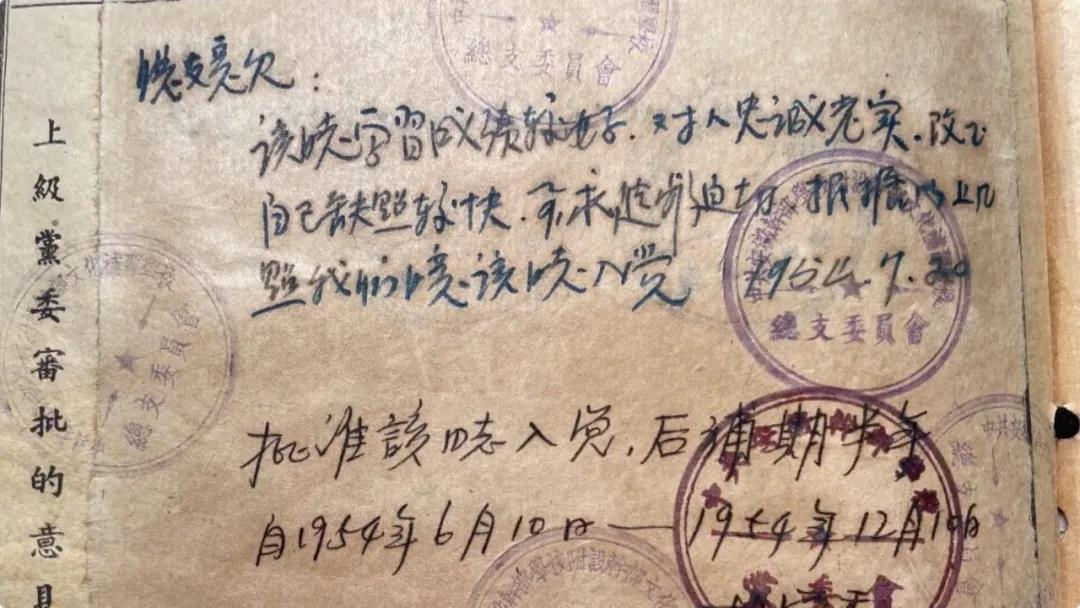 上級黨委審批的意見
總支意見：
该同志学習成績較好．对人忠诚老实．改正
自己缺點較快．要求進步迫切．根據以上几
點我们同意该同志入党 1954.7.20
總支委員會
批准該同志入党．后補期半年
自1954年6月10日——1954年12月10日
總支委員會
總支委員會
黨委會